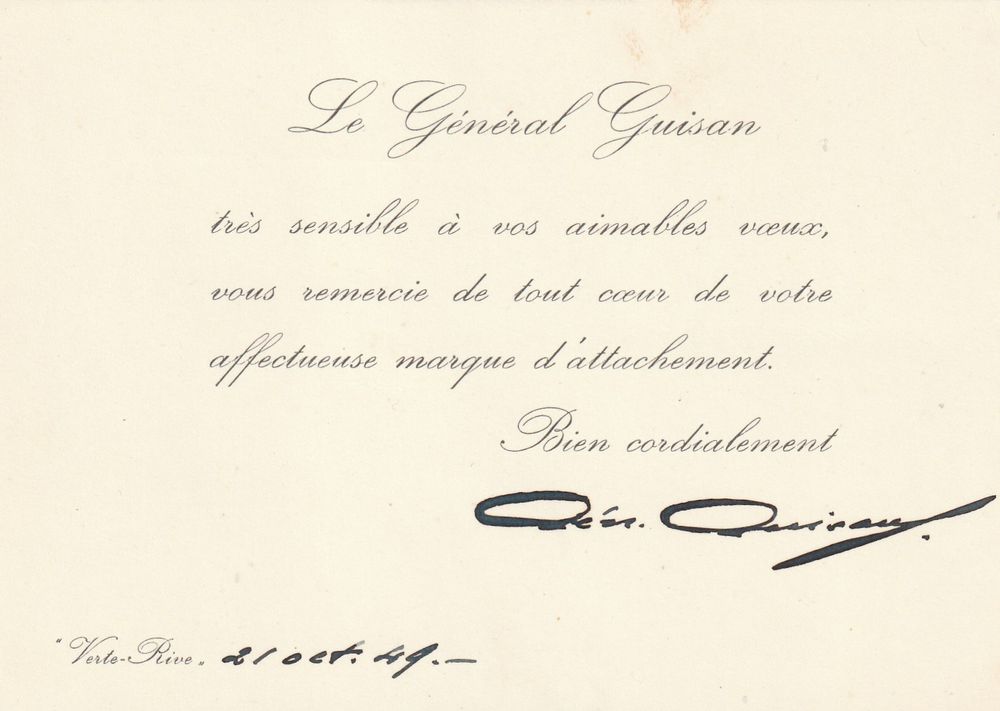 Le Général Guisan
très sensible à vos aimables vœux,
vous remercie de tout cœur de votre
affectueuse marque d'attachement.
Bien cordialement
Gén. Guisan.
"Verte-Rive„ 21 oct. 49.–